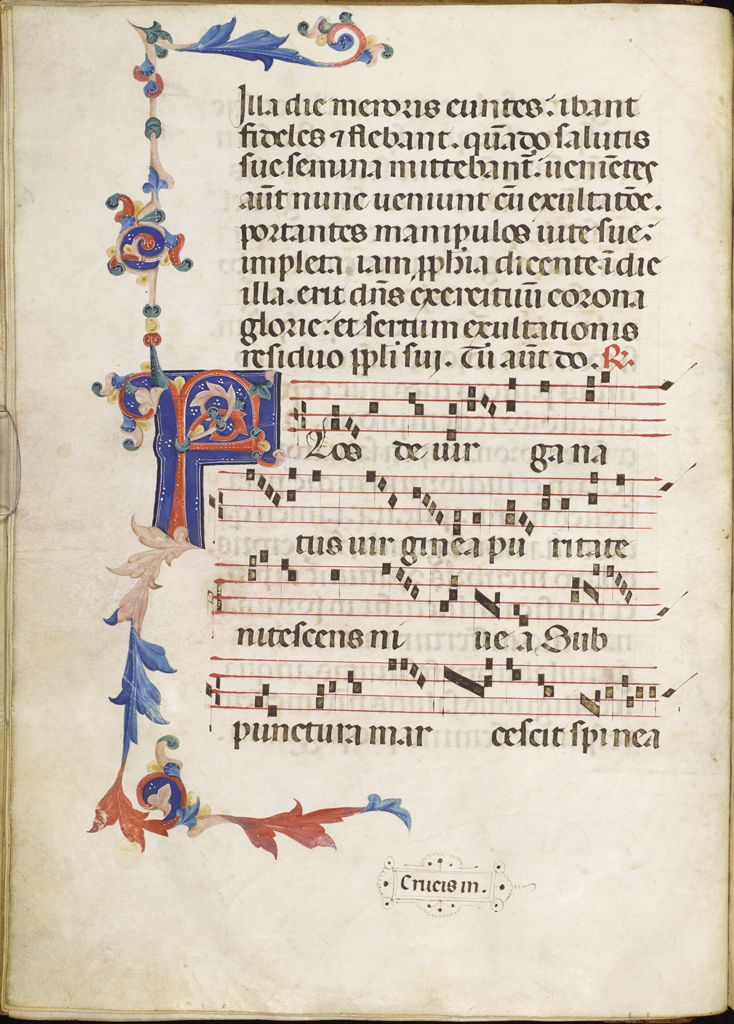 Illa die meroris euntes: ibant
fideles ⁊ flebant. quãdo salutis
sue semina mittebant̃. uenie͂tes
aũt nunc ueniunt cũ exultatõe.
portantes manipulos uite sue:
impleta iam ꝓph̃ia dicente ĩ die
illa. erit dñs exercituũ corona
glorie: et sertum exultationis
residuo ppli sui. Tũ aũt do. ℞.
Flos de uir ga na
tus uir ginea pu ritate
nitescens ni ue a Sub
punctura mar cescit spinea
Crucis in.